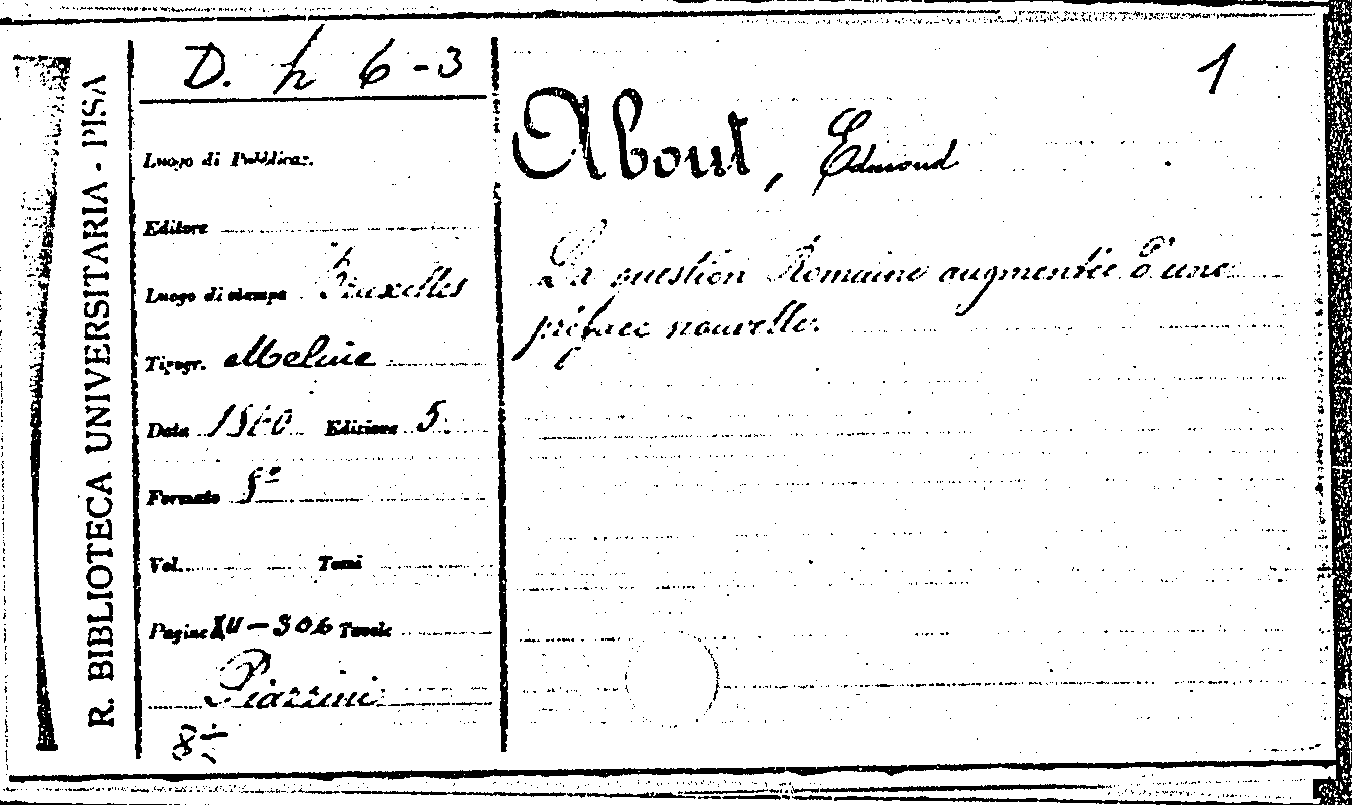 R. BIBLIOTECA UNIVERSITARIA - PISA
D. h 6-3
Luogo di Pubblicaz.
Editore
Luogo di stampa Bruxelles
Tipogr. Meline
Data 1860 Edizione 5.
Formato 8º
Vol. Tomi
Pagine XV-306 Tavole
Piazzini
1
About, Edmond
La question Romaine augmentée d'une
préface nouvelle.